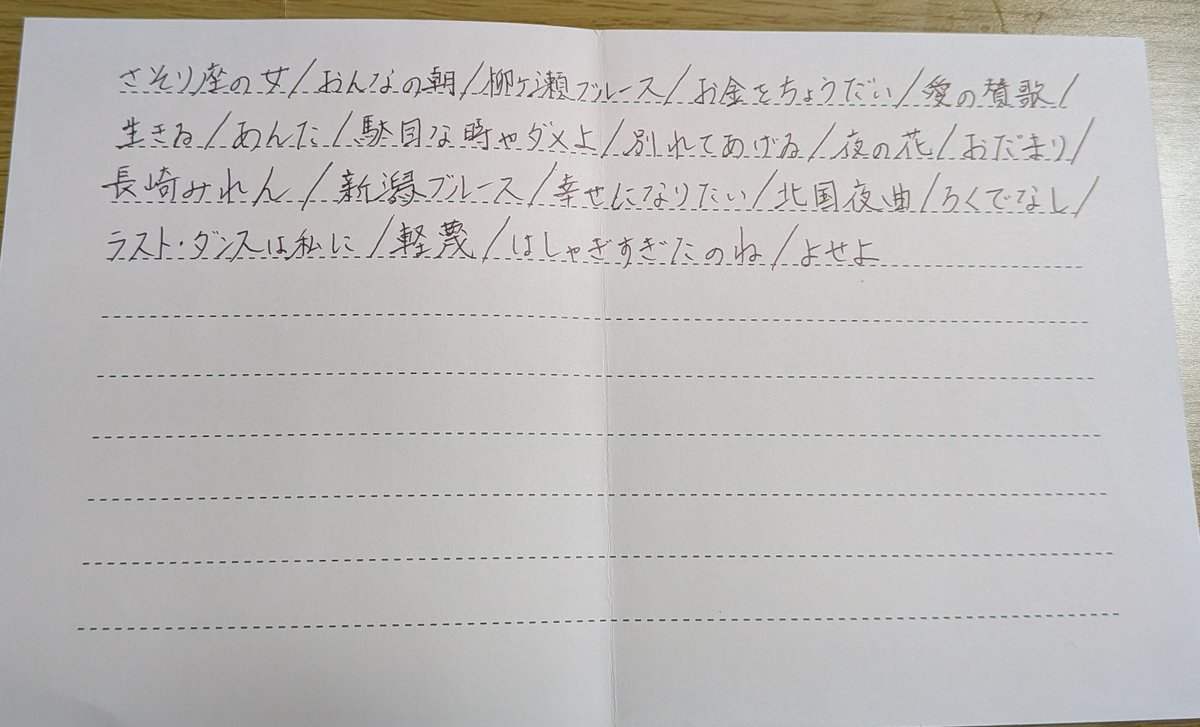 さそり座の女/おんなの朝/柳ヶ瀬ブルース/お金をちょうだい/愛の賛歌/
生きる/あんた/駄目な時ゃダメよ/別れてあげる/夜の花/おだまり/
長崎みれん/新潟ブルース/幸せになりたい/北国夜曲/ろくでなし/
ラスト・ダンスは私に/軽蔑/はしゃぎすぎたのね/よせよ